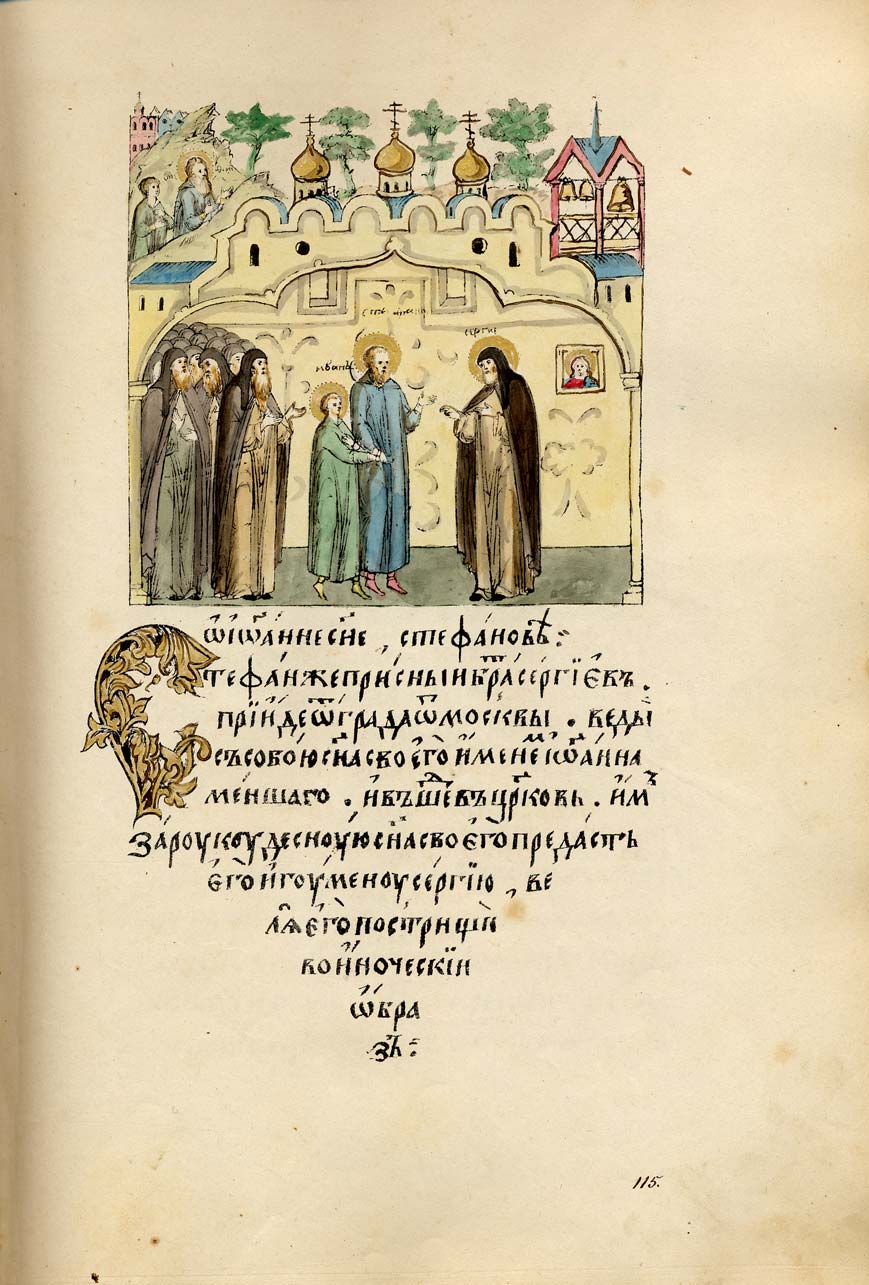 Стефанъ
сергие
Иванъ
ѿ іѡа́нне сн҃е, стефа́новѣ:
Стефа́н же при́сныи бра́т се́ргїевъ.
прїи́де ѿ гра́да ѿ москвы̀. веды̀
съ собо́ю сн҃а своего̀ и́менемъ іѡа́нна
ме́ншаго. и҆ въше́д въ цр҃ковь. и҆мъ
за́ роукоу десноу́ю сн҃а своего̀ преда́сть
е҆го̀ и҆гоу́меноу се́ргїю, ве
лѧ̀ е҆го̀ постри́щи
во и҆́ноческїи
ѡ҆́бра
зъ:
115.